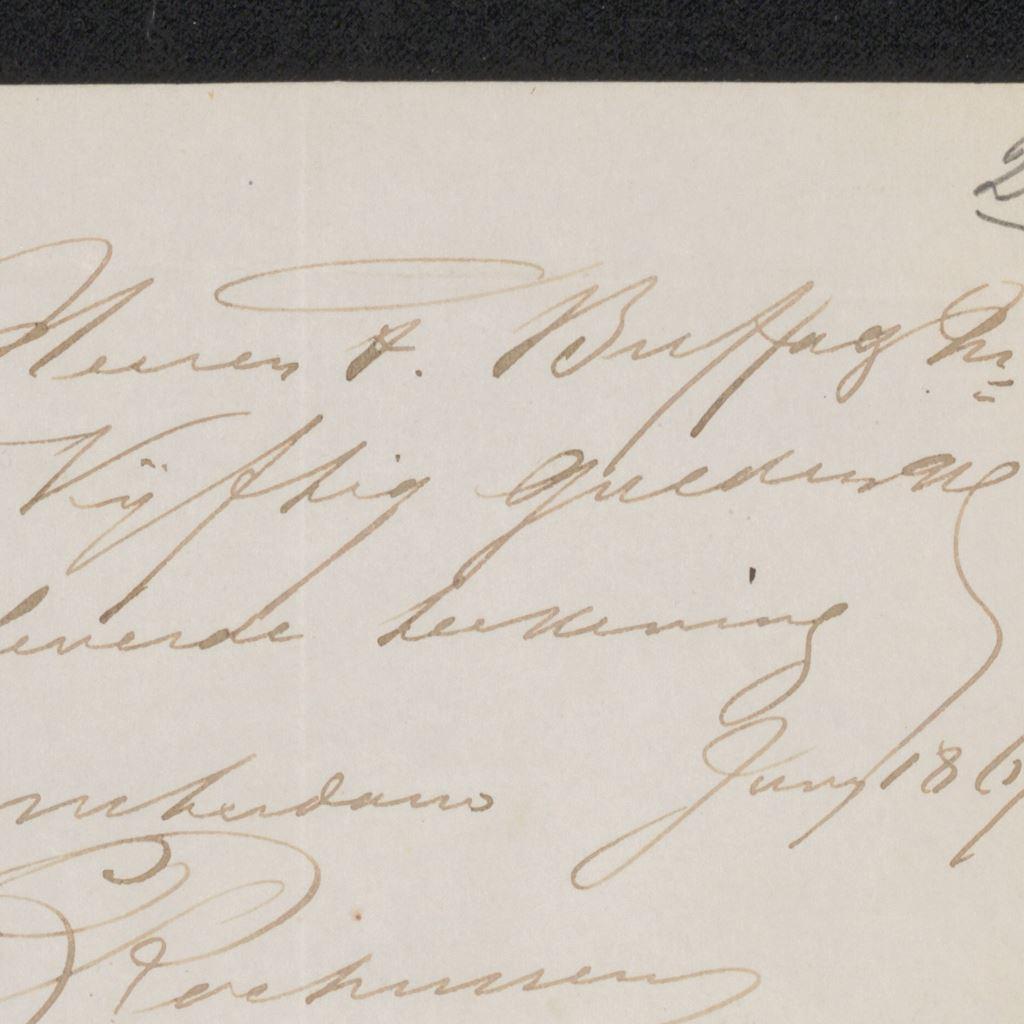 2
Heeren F. Buffa & Zn
Vijftig Gulden, ge
leverde teekening
msterdam Juny 186
C Rochussen